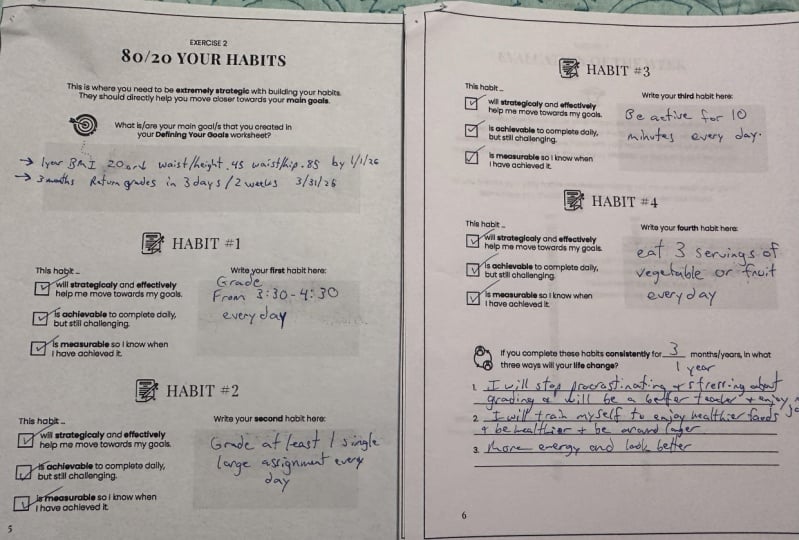 EXERCISE 2
80/20 YOUR HABITS
This is where you need to be extremely strategic with building your habits.
They should directly help you move closer towards your main goals.
What is/are your main goal/s that you created in
your Defining Your Goals worksheet?
→ 1 year BMI 20 and waist/height .45 waist/hip .85 by 1/1/26
→ 3 months Return grades in 3 days / 2 weeks 3/31/25
HABIT #1
This habit ...
will strategicaly and effectively
help me move towards my goals.
is achievable to complete daily,
but still challenging.
is measurable so I know when
I have achieved it.
Write your first habit here:
Grade
From 3:30-4:30
every day
HABIT #2
This habit ...
will strategicaly and effectively
help me move towards my goals.
is achievable to complete daily,
but still challenging.
is measurable so I know when
I have achieved it.
Write your second habit here:
Grade at least 1 single
large assignment every
day
5
HABIT #3
This habit ...
will strategicaly and effectively
help me move towards my goals.
is achievable to complete daily,
but still challenging.
is measurable so I know when
I have achieved it.
Write your third habit here:
Be active for 10
minutes every day.
HABIT #4
This habit ...
will strategicaly and effectively
help me move towards my goals.
is achievable to complete daily,
but still challenging.
is measurable so I know when
I have achieved it.
Write your fourth habit here:
eat 3 servings of
vegetable or fruit
every day
If you complete these habits consistently for 3 months/years, in what
three ways will your life change?
1 year
1. I will stop procrastinating + stressing about
grading & will be a better teacher + enjoy
2. I will train myself to enjoy healthier foods
+ be healthier + be around longer
3. more energy and look better
6